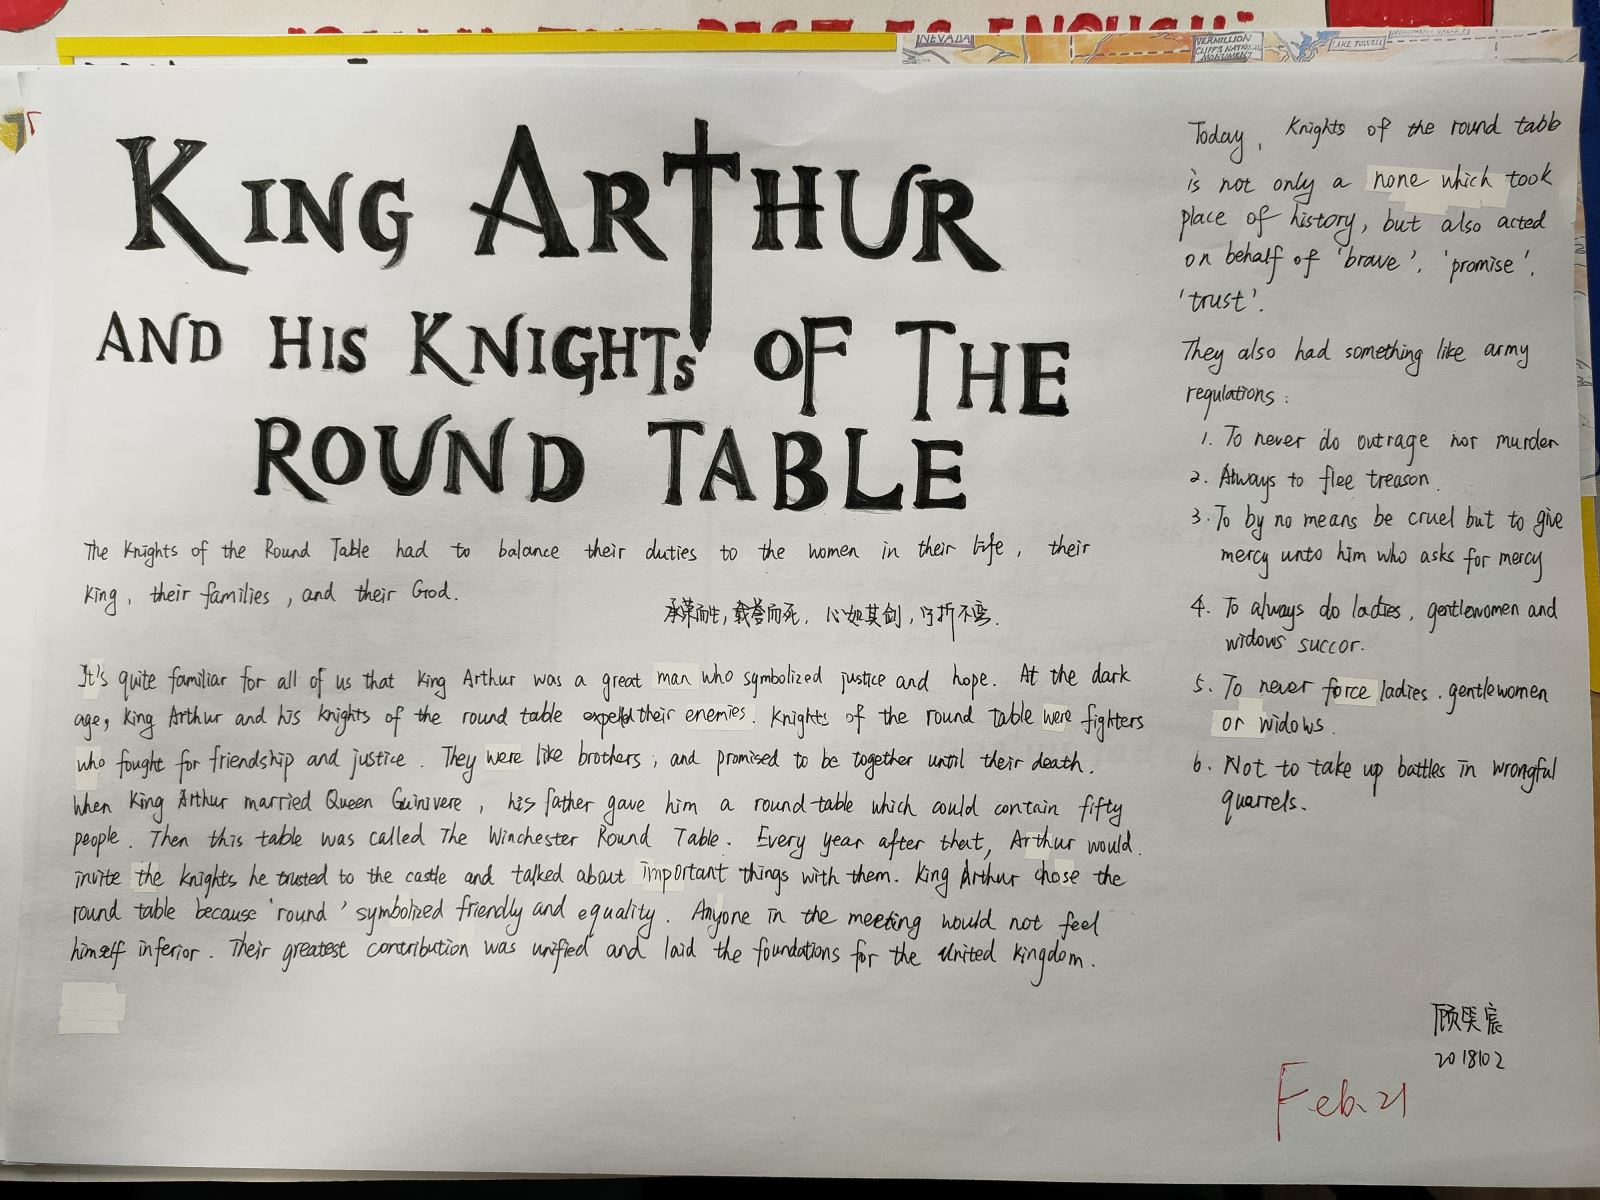 NEVADA
VERMILLION
CLIFFS NATIONAL
MONUMENT
LAKE POWELL
KING ARTHUR
AND HIS KNIGHTS OF THE
ROUND TABLE
The Knights of the Round Table had to balance their duties to the women in their life, their
King, their families, and their God.
承荣而生,载誉而死,心如其剑,宁折不弯.
It's quite familiar for all of us that King Arthur was a great man who symbolized justice and hope. At the dark
age, King Arthur and his knights of the round table expelled their enemies. Knights of the round table were fighters
who fought for friendship and justice. They were like brothers, and promised to be together until their death.
When King Arthur married Queen Guinivere, his father gave him a round-table which could contain fifty
people. Then this table was called The Winchester Round Table. Every year after that, Arthur would
invite the knights he trusted to the castle and talked about important things with them. King Arthur chose the
round table because 'round' symbolized friendly and equality. Anyone in the meeting would not feel
himself inferior. Their greatest contribution was unified and laid the foundations for the United Kingdom.
Today, Knights of the round table
is not only a none which took
place of history, but also acted
on behalf of 'brave', 'promise',
'trust'.
They also had something like army
regulations:
1. To never do outrage nor murder
2. Always to flee treason.
3. To by no means be cruel but to give
mercy unto him who asks for mercy
4. To always do ladies, gentlewomen and
widows succor.
5. To never force ladies, gentlewomen
or widows.
6. Not to take up battles in wrongful
quarrels.
顾奕宸
2018102
Feb. 21